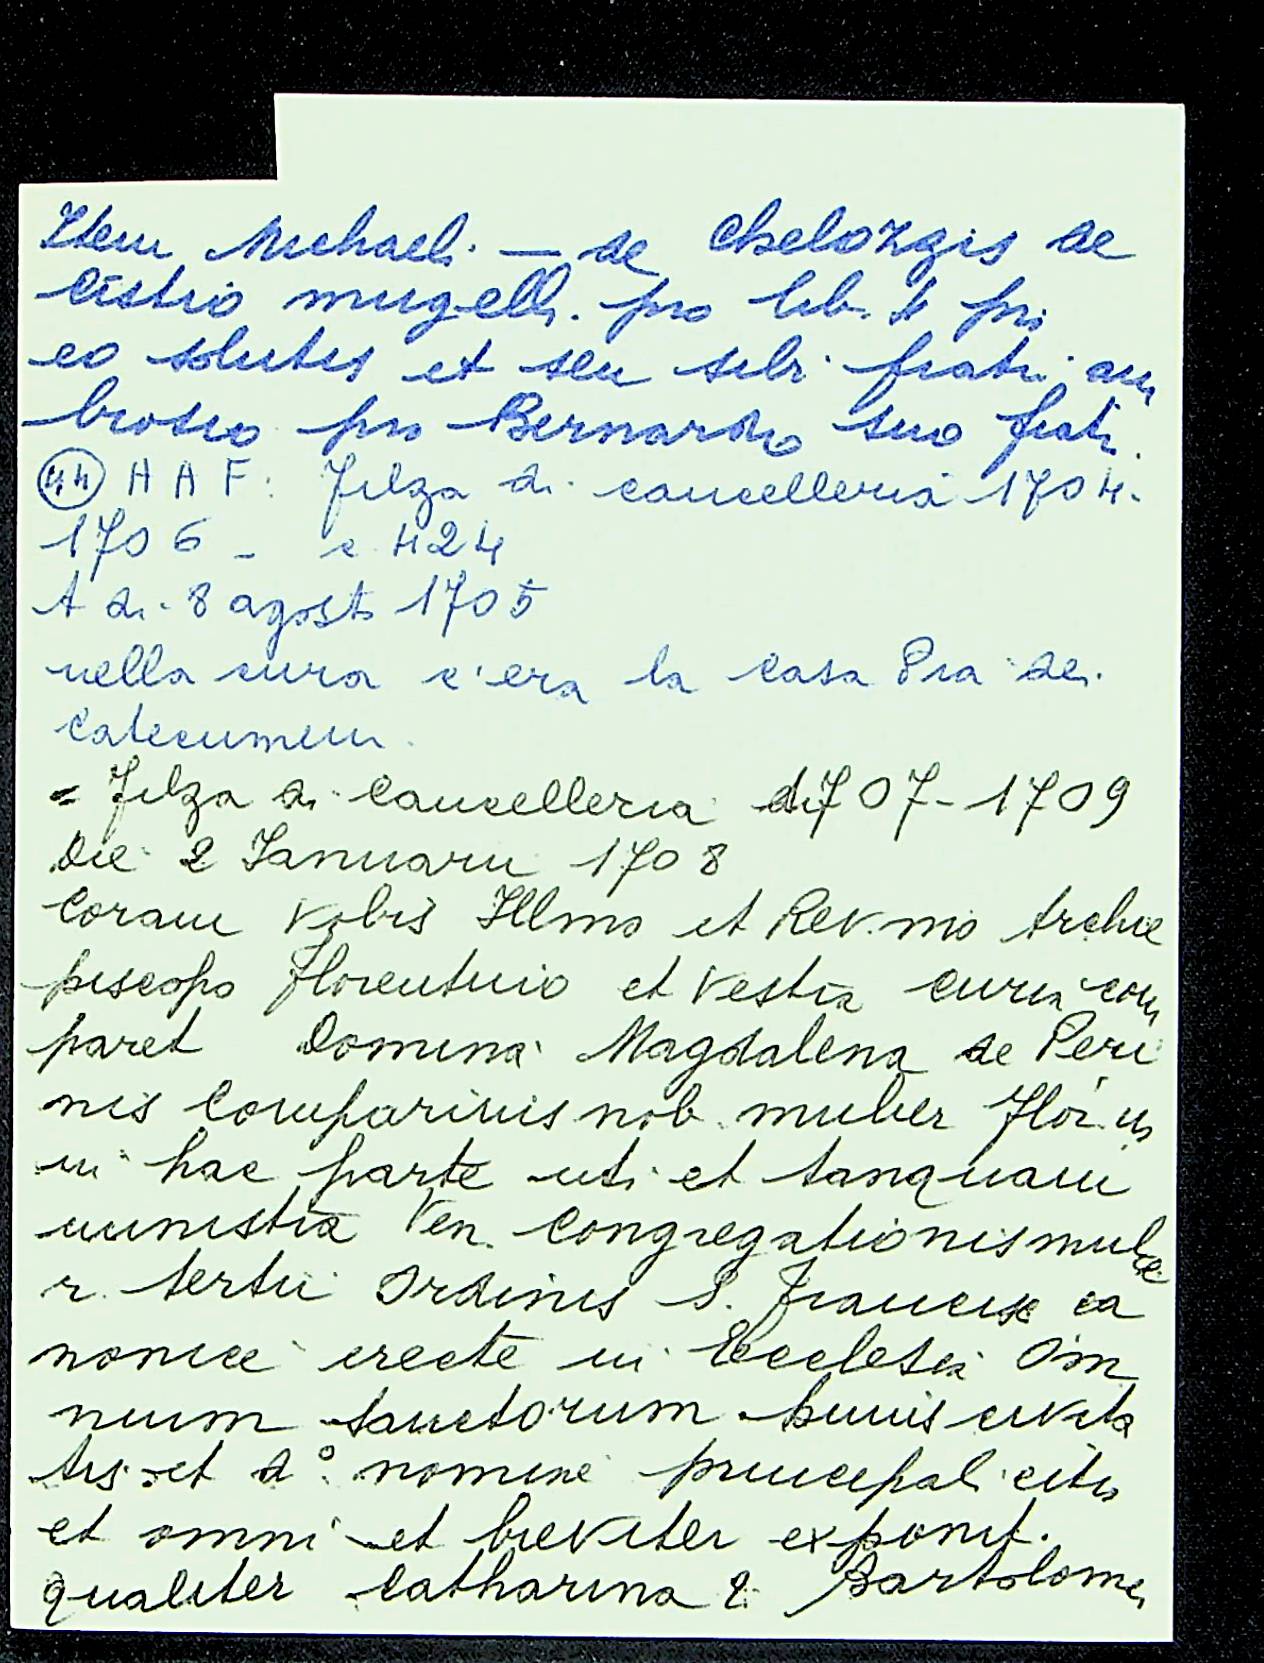 Item Michaeli — de Chelozgis de
Castro mugelli. pro lib. 4 pri
eo solutis et seu sibi frati am
brosio pro Bernardo suo frati.
(44) A A F: Filza di cancelleria 1704-
1706 - c 424
A di 8 agosto 1705
nella cura c'era la casa Pia dei
catecumeni.
= Filza di Cancelleria 1707-1709
Die 2 Ianuarii 1708
Coram vobis Illmo et Rev.mo Archie
piscopo Florentino et Vestra curia com
paret Domina Magdalena de Peri
nis Comparinis nob. mulier Flor.
in hac parte uti et tanquam
ministra Ven. Congregationis mulie
r. tertii Ordinis S. Francisci ca
nonice erecte in Ecclesia Om
nium Sanctorum huius civita
tis et do. nomine principal. citr
et omni et breviter exponit.
qualiter Catharina q. Bartolomei